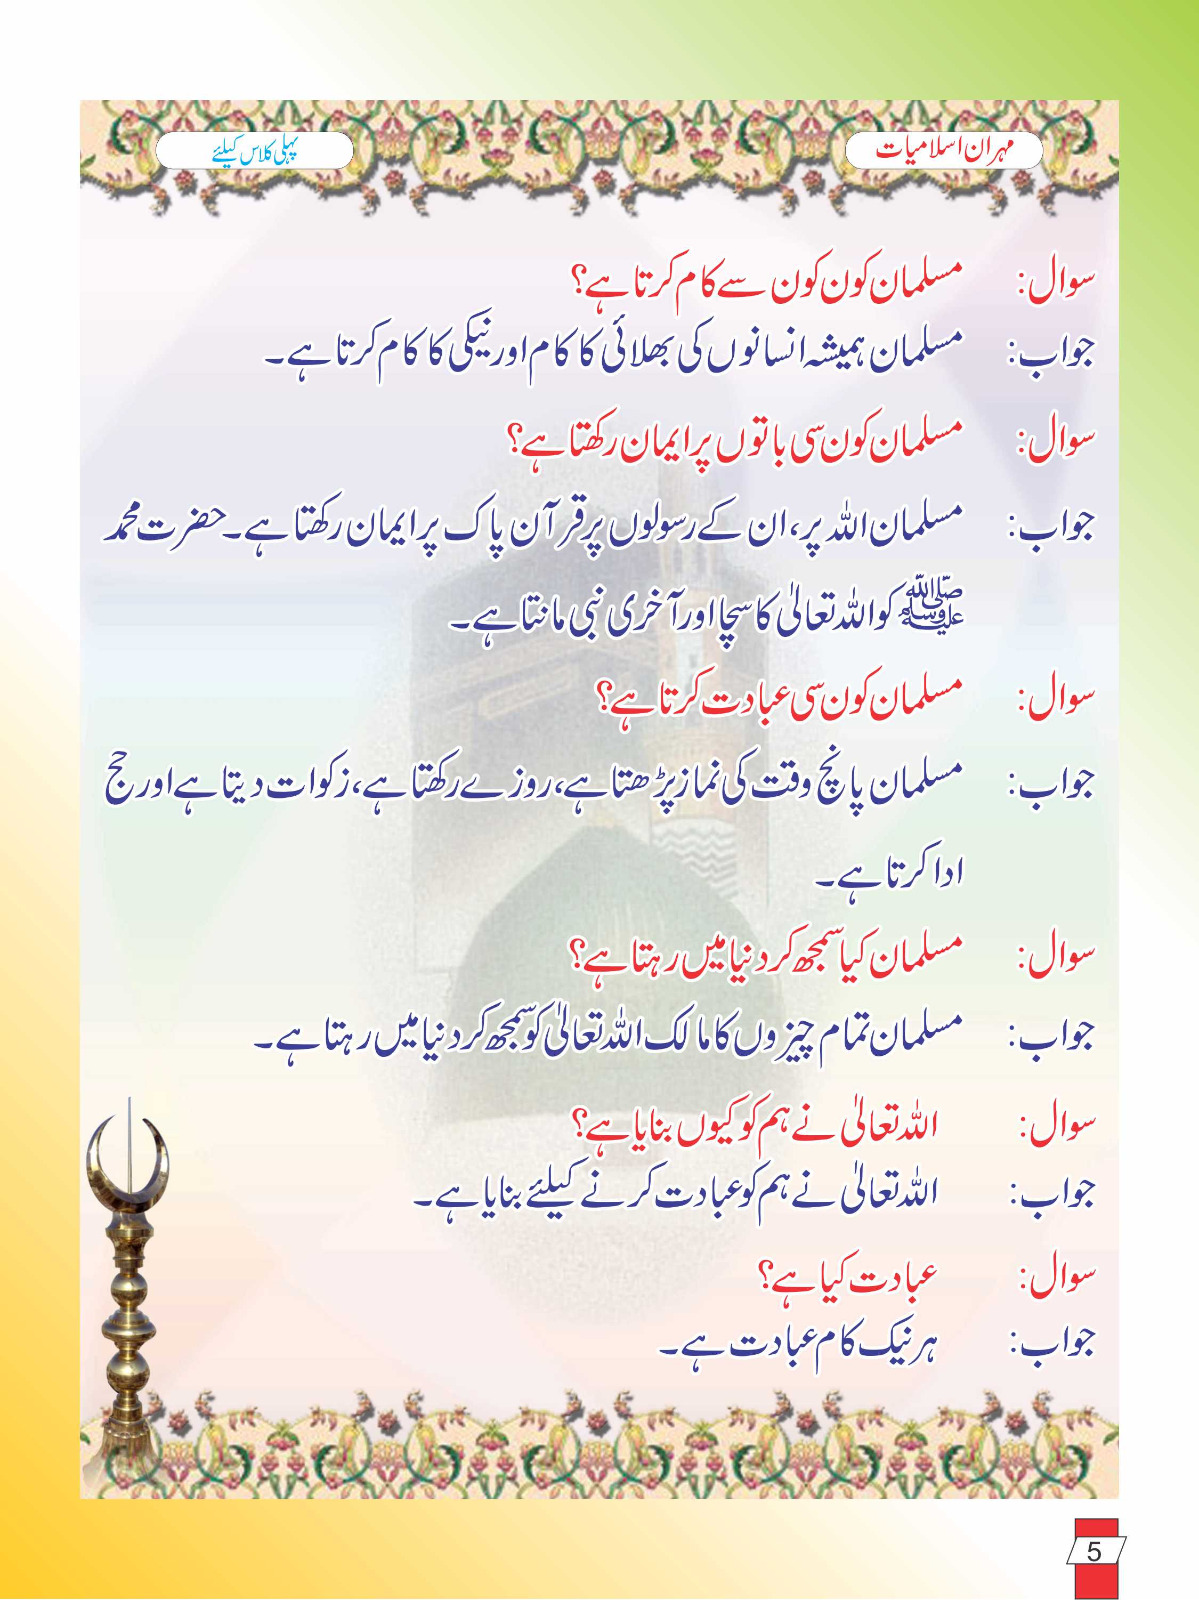 مہران اسلامیات
پہلی کلاس کیلئے
سوال: مسلمان کون کون سے کام کرتا ہے؟
جواب: مسلمان ہمیشہ انسانوں کی بھلائی کا کام اور نیکی کا کام کرتا ہے۔
سوال: مسلمان کون سی باتوں پر ایمان رکھتا ہے؟
جواب: مسلمان اللہ پر، ان کے رسولوں پر قرآن پاک پر ایمان رکھتا ہے۔ حضرت محمد
ﷺ کو اللہ تعالیٰ کا سچا اور آخری نبی مانتا ہے۔
سوال: مسلمان کون سی عبادت کرتا ہے؟
جواب: مسلمان پانچ وقت کی نماز پڑھتا ہے، روزے رکھتا ہے، زکوات دیتا ہے اور حج
ادا کرتا ہے۔
سوال: مسلمان کیا سمجھ کر دنیا میں رہتا ہے؟
جواب: مسلمان تمام چیزوں کا مالک اللہ تعالیٰ کو سمجھ کر دنیا میں رہتا ہے۔
سوال: اللہ تعالیٰ نے ہم کو کیوں بنایا ہے؟
جواب: اللہ تعالیٰ نے ہم کو عبادت کرنے کیلئے بنایا ہے۔
سوال: عبادت کیا ہے؟
جواب: ہر نیک کام عبادت ہے۔
5